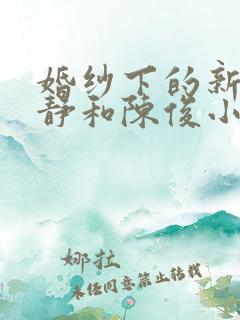 婚纱下的新
静和陈俊小
娜拉
未经同意禁止转载